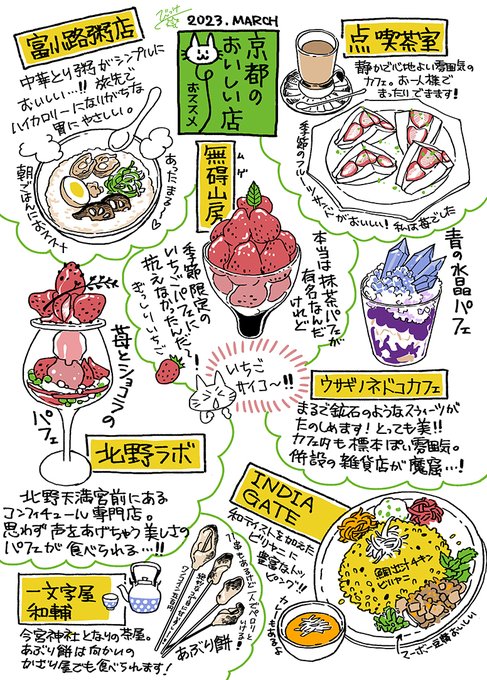 2023. MARCH
京都の
おいしい店
おススメ
富小路粥店
中華とり粥がシンプルに
おいしい…!! 旅先で
ハイカロリーになりがちな
胃にやさしい。
あったまる〜
朝ごはんにおススメ
点 喫茶室
静かで心地よい雰囲気の
カフェ。お一人様で
まったりできます!
季節のフルーツサンドがおいしい!私は苺でした
ムゲ
無碍山房
本当は抹茶パフェが
有名なんだ
けれど
季節限定の
いちごパフェに
抗えなかったんだ〜!
ぎっしりいちご
いちご
サイコ〜!!
青の水晶パフェ
ウサギノネドコカフェ
まるで鉱石のようなスウィーツが
たのしめます!とっても美!!
カフェ内も標本ぽい雰囲気。
併設の雑貨店が魔窟…!
苺とショコラの
パフェ
北野ラボ
北野天満宮前にある
コンフィチュール専門店。
思わず声をあげちゃう美しさの
パフェが食べられる…!!
INDIA
GATE
和テイストを加えた
ビリヤニに
豊富なトッ
ピング!!
鯛出汁チキン
ビリヤニ
カレーもあるよ
マーボー豆腐おいしい
一文字屋
和輔
今宮神社となりの茶屋。
あぶり餅は向かいの
かざり屋でも食べられます!
あぶり餅